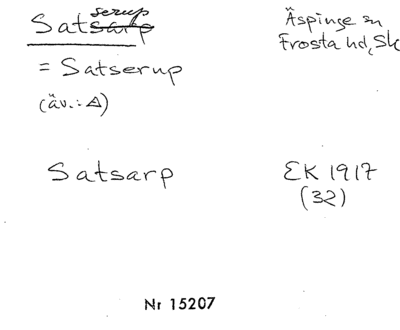 Satsarp serup
Äspinge sn
Frosta hd, Sk
= Satserup
(äv.: △)
Satsarp
EK 1917
(32)
Nr 15207